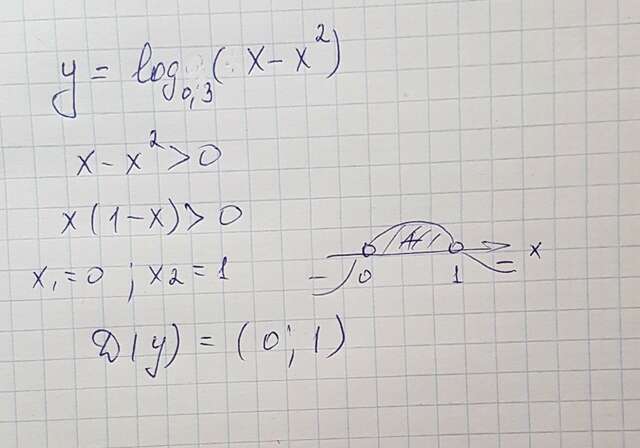 y = log₀,₃ ( x - x²)
x - x² > 0
x (1 - x) > 0
x₁ = 0 ; x2 = 1
- 0 + 1 - x
D(y) = (0; 1)